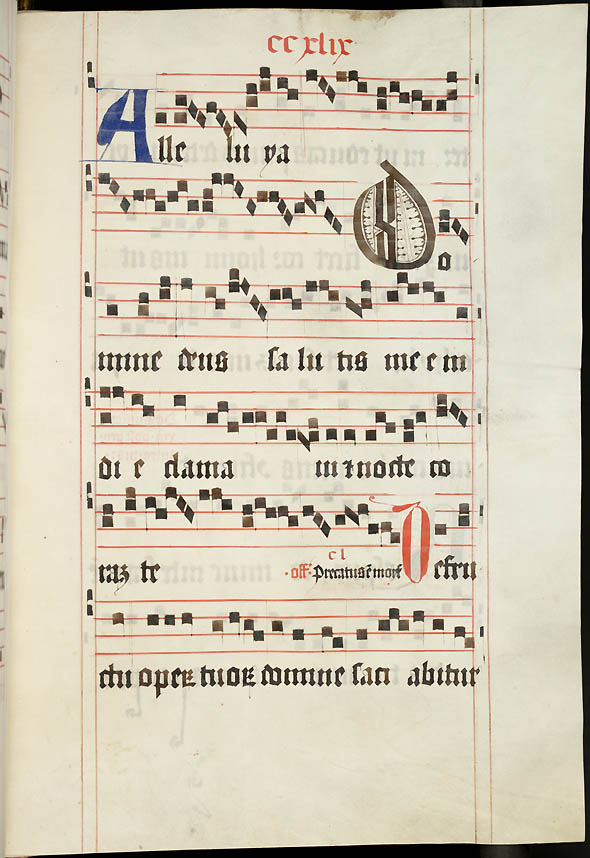 cc xlix
Alle lu ya
Do
mine deus sa lu tis me e in
di e clama ui ⁊ nocte co
raʒ te
cl
·off· Precatus ē moyſ
De fru
ctu operꝝ tuoꝝ domine saci abitur